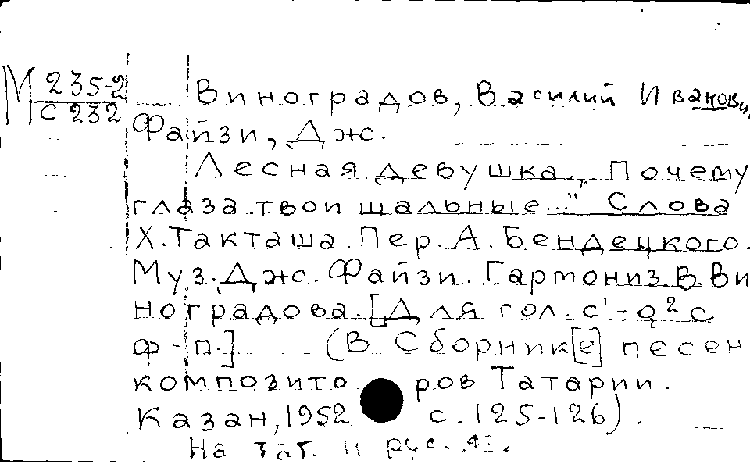 М 235-2
С 232
Виноградов, Василий Иванови
Файзи, Дж.
Лесная девушка. „Почему
глаза твои шальные..." Слова
Х. Такташа. Пер. А. Бендецкого.
Муз. Дж. Файзи. Гармониз. В. Ви
ноградова. [Для гол. с¹-а² с
ф-п.] (В Сборник[е] песен
композиторов Татарии.
Казан, 1952 с. 125-126).
На тат. и рус. яз.